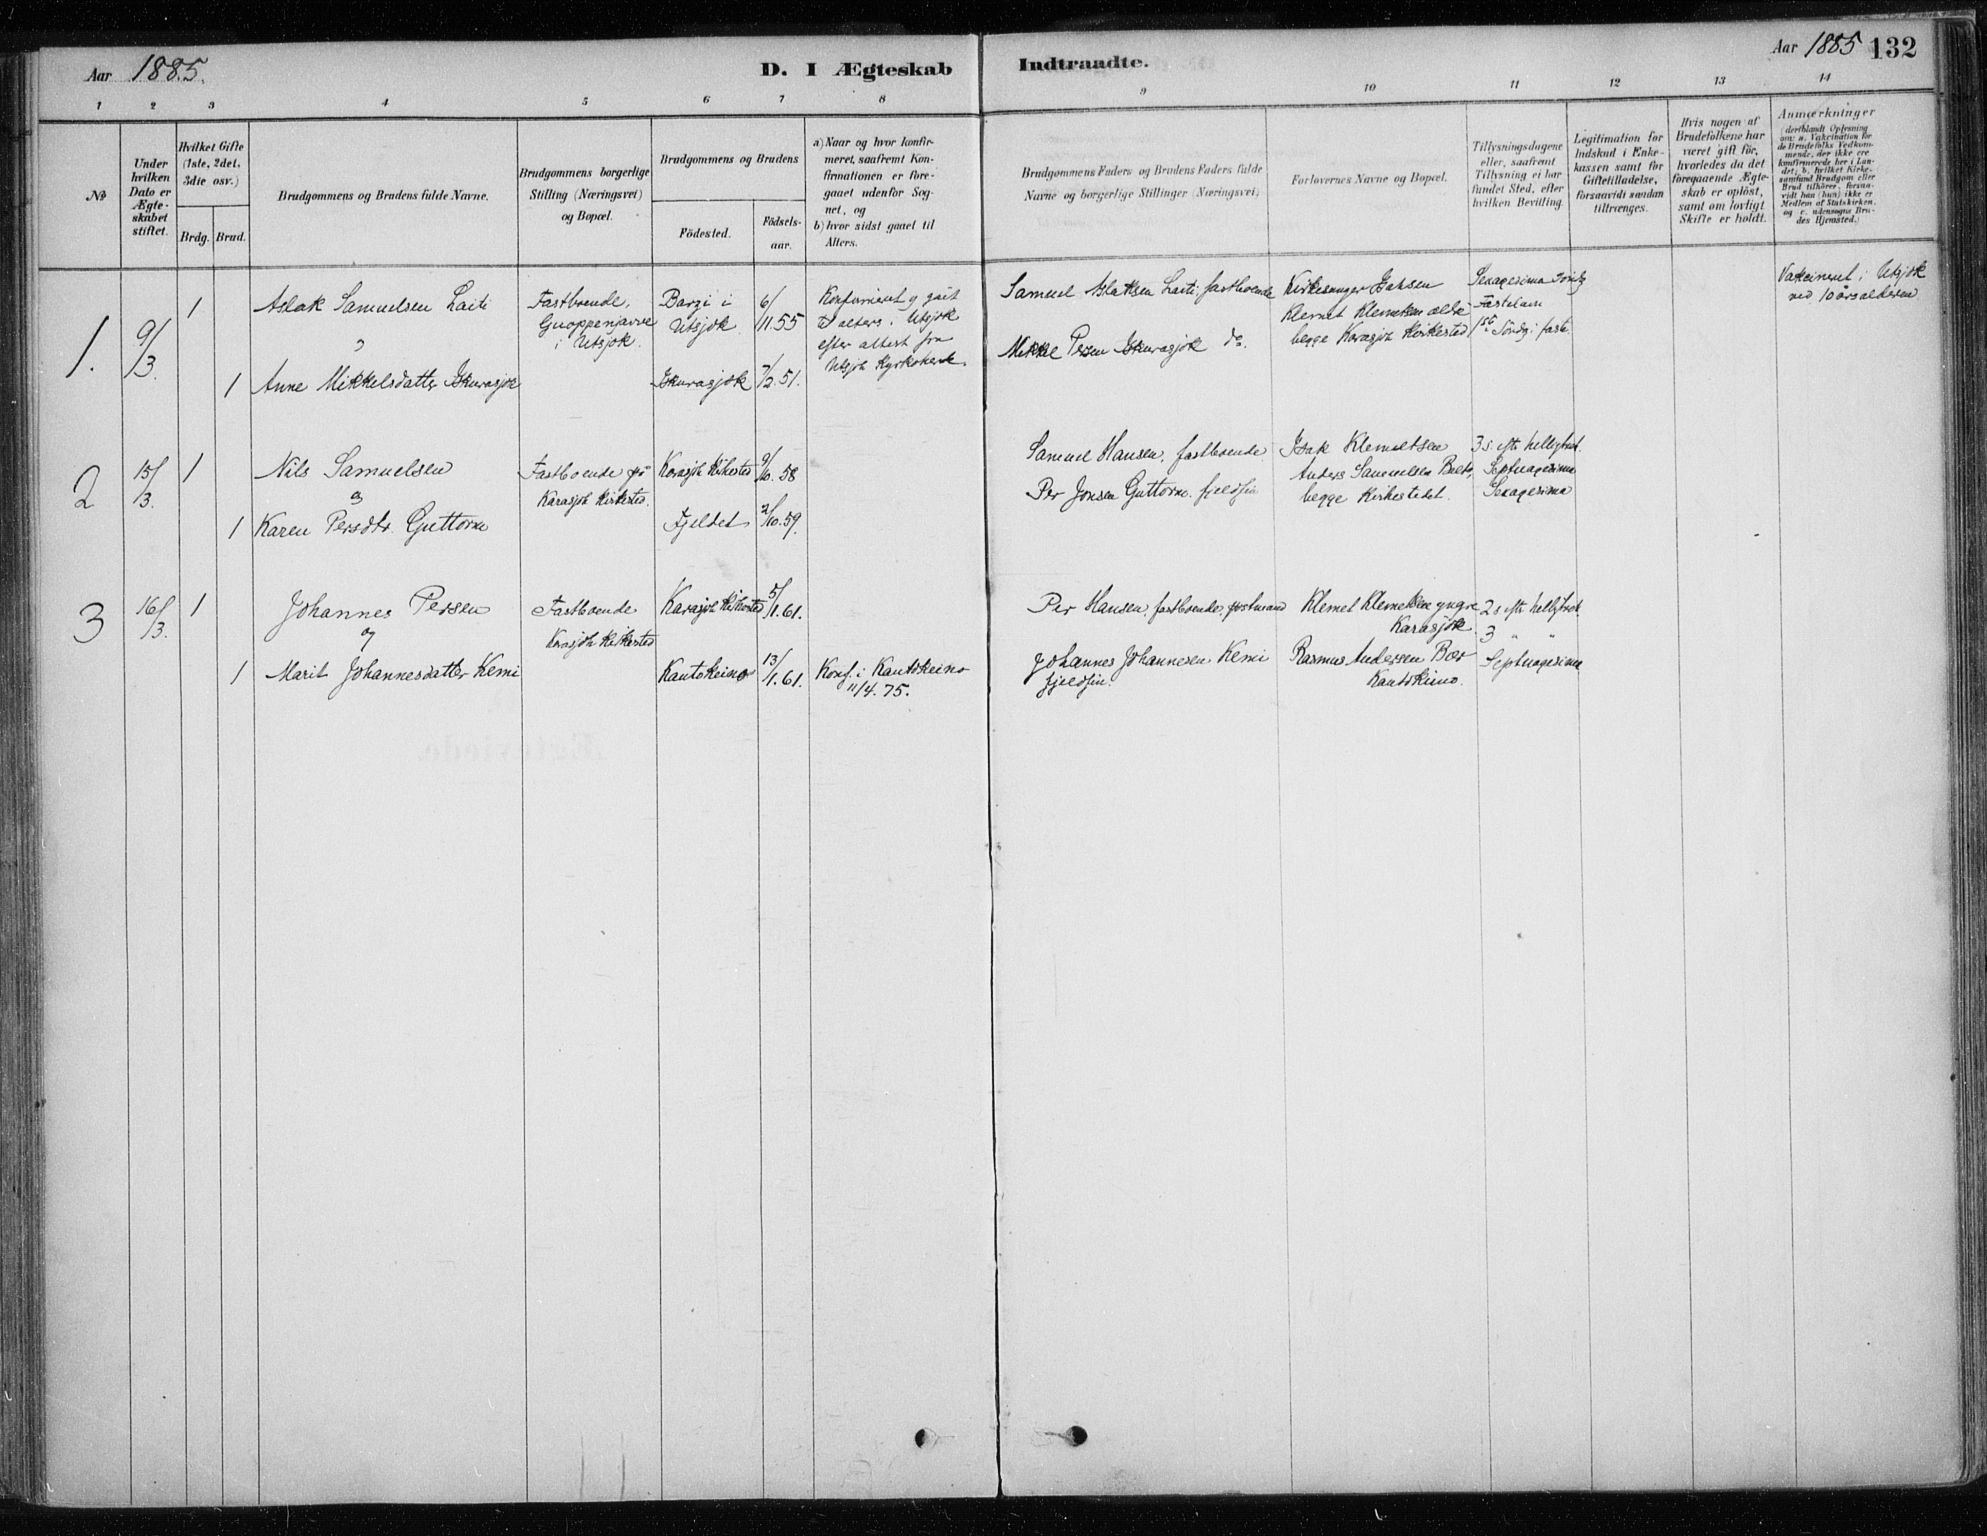 Aar 1885.
D. I Ægteskab Indtraadte.
Aar 1885 132
1 2 3 4 5 6 7 8 9 10 11 12 13 14
№
Under hvilken Dato er Ægte-skabet stiftet.
Hvilket Gifte (1ste, 2det, 3die osv.)
Brdg. Brud.
Brudgommens og Brudens fulde Navne.
Brudgommens borgerlige Stilling (Næringsvei) og Bopæl.
Brudgommens og Brudens
Födested.
Födsels-aar.
a) Naar og hvor konfir-meret, saafremt Kon-firmationen er fore-gaaet udenfor Sog-net, og
b) hvor sidst gaaet til Alters.
Brudgommens Faders og Brudens Faders fulde Navne og borgerlige Stillinger (Næringsvei).
Forlovernes Navne og Bopæl.
Tillysningsdagene eller, saafremt Tillysning ei har fundet Sted, efter hvilken Bevilling.
Legitimation for Indskud i Enke-kassen samt for Giftetilladelse, forsaavidt saadan tiltrænges.
Hvis nogen af Brudefolkene har været gift för, hvorledes da det foregaaende Ægte-skab er oplöst, samt om lovligt Skifte er holdt.
Anmærkninger (deriblandt Oplysning om: a. Vakcination for de Brudefolks Vedkom-mende, der ikke ere konfirmerede her i Lan-det; b. hvilket Kirke-samfund Brudgom eller Brud tilhörer, forsaa-vidt han (hun) ikke er Medlem af Statskirken, og c. udensogns Bru-des Hjemsted.)
1. 9/3. 1
Aslak Samuelsen Laiti
Fastboende, Guoppenjavre i Utsjok.
Barzi i Utsjok
6/11.55
Konfirmeret og gået til alters i Utsjok efter attest fra Utsjok Kyrkoherde.
Samuel Aslaksen Laiti, fastboende
Kirkesanger Isaksen
Klemet Klemetsen ældre
begge Karasjok Kirkested
Sexagesima Söndg
Fastelavn
1ste Söndg i faste
Vakcineret i Utsjok ved 10 årsalderen
1 Anne Mikkelsdatter Iskurasjok
Iskurasjok 7/2.51.
Mikkel Persen Iskurasjok do.
2 15/3. 1
Nils Samuelsen
og
Fastboende på Karasjok Kirkested.
Karasjok Kirkested 9/10.58
Samuel Hansen, fastboende.
Isak Klemetsen
Anders Samuelsen Balto,
begge Kirkestedet.
3 s. eft. helligtrek.
Septuagesima
Sexagesima
1 Karen Persdtr. Guttorm
Fjeldet 2/10.59.
Per Jonsen Guttorm. fjeldfin
3 16/3. 1
Johannes Persen
og
Fastboende Karasjok Kirkested
Karasjok Kirkested 5/1.61.
Per Hansen, fastboende, postmand
Klemet Klemetsen yngre Karasjok
2 s. eft. helligtrek.
3 " "
Septuagesima
1 Marit Johannesdatter Kemi
Kautokeino 13/1.61.
Konf. i Kautokeino 11/4.75.
Johannes Johannesen Kemi fjeldfin.
Rasmus Andersen Bær Kautokeino.